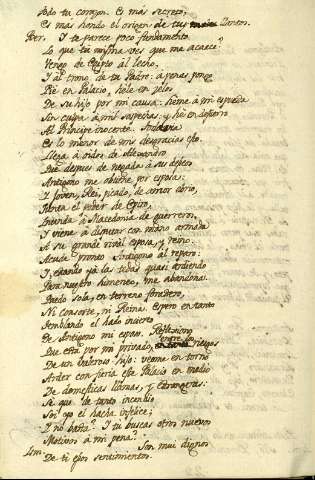 Todo tu corazon. Es más secreto,
Es más hondo el origen de tus
Ber. Y te parece poco fundamento
Lo que tú misma ves que me acaece?
Vengo de Egipto al lecho,
Y al trono de tu Padre: apenas pongo
Pié en Palacio, hele en zelos
De su hijo por mi causa: heme à mi espuesta
Sin culpa à mil sospechas: y he en destierro
Al Principe inocente. Todavia
Es lo menor de mis desgracias esto.
Llega à oidos de Alexandro
Que despues de negada à sus deseos
Antigono me obtiene por esposa:
Y Joven, Rei, picado, de amor ebrio,
Juntra el poder de Epiro,
Inunda à Macedonia de guerreros,
Y viene à disputar con mano armada
A su grande rival esposa, y reino.
Acude pronto Antigono al reparo:
Y, estando yà las tedas quasi ardiendo
Para nuestro himeneo, me abandona.
Quedo sola, en terreno forastero,
Ni consorte, ni Reina. Espero en tanto
Temblando el hado incierto
De Antigono mi esposo. Reflexiono
Que està por mi privado, entre los riesgos
De un invencible suyo: veome en torno
Arder con furia este Palacio en medio
De domesticas llamas, y estrangeras:
Sé que de tanto incendio
Soi yo el hacha infelice;
Y no basta? Y tu buscas otros nuevos
Motivos à mi pena?
Ism. Son mui dignos
De ti esos sentimientos.